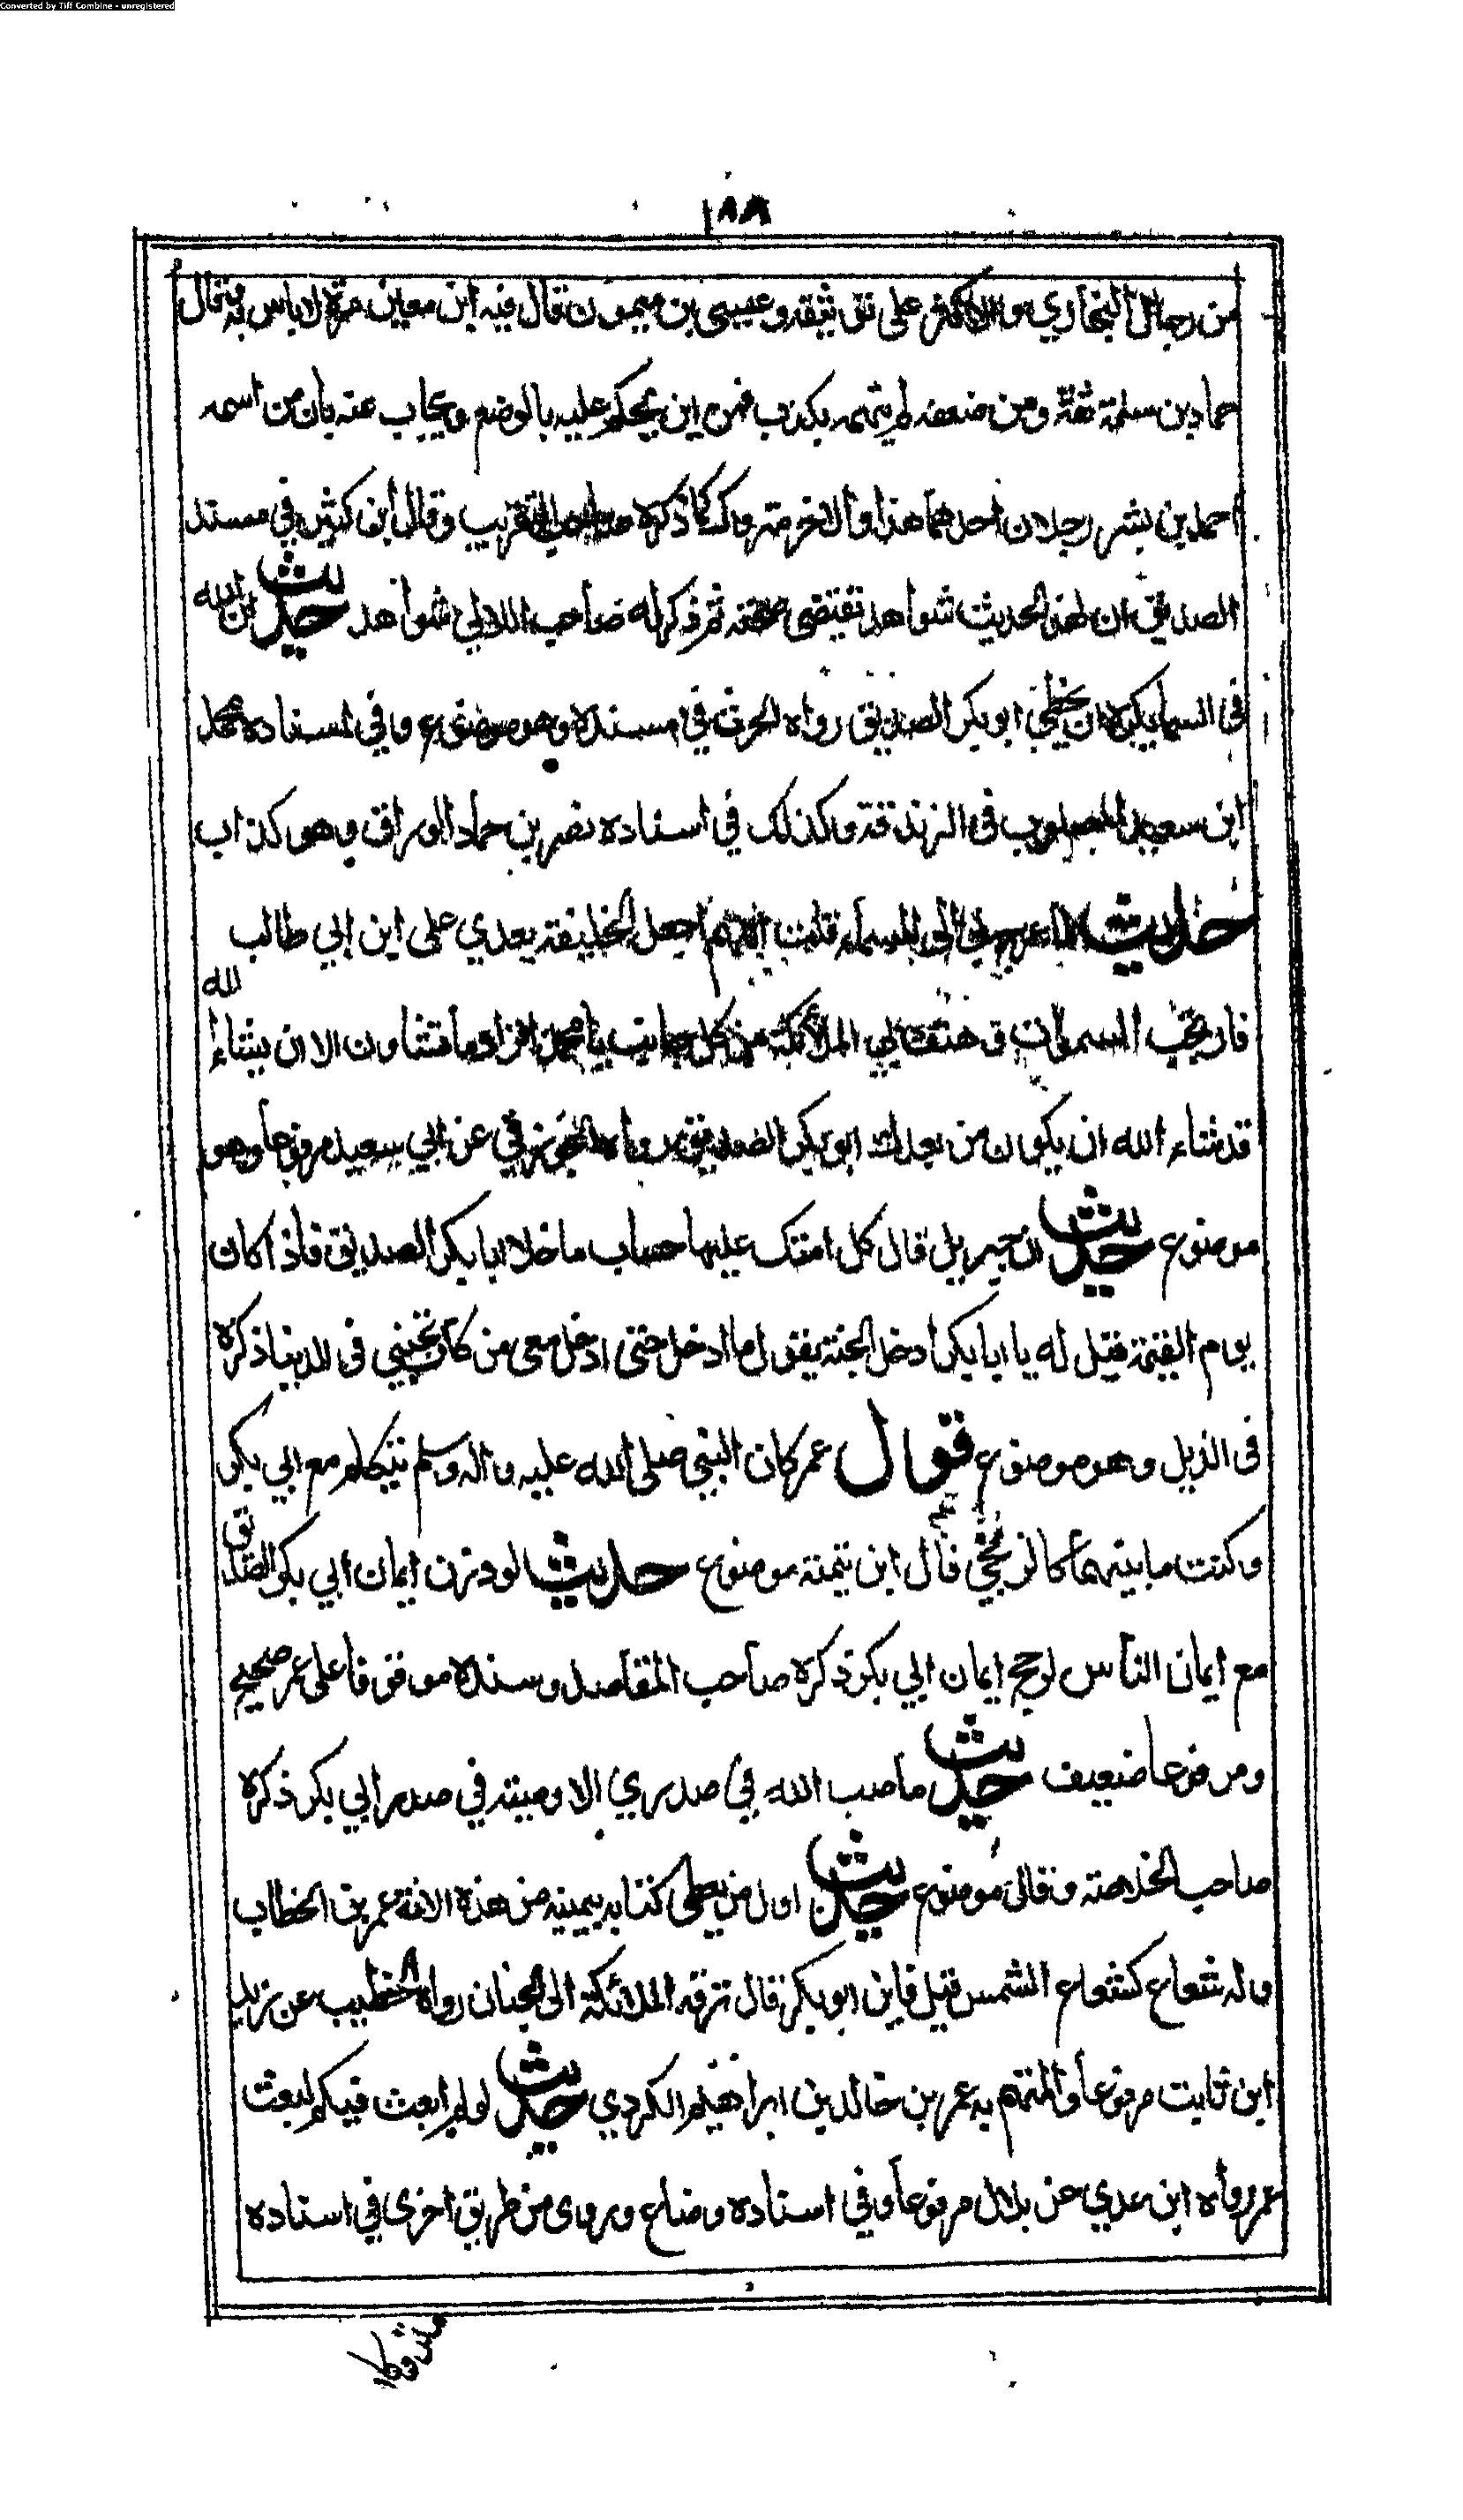 Converted by Tiff Combine - unregistered
١٨٨
من رجال البخاري والاكثر على توثيقه وعيسى بن ميمون قال فيه ابن معين مرة لا باس به وقال
حماد بن سلمة ثقة ومن ضعفه لم يتهمه بكذب فمن اين يحكم عليه بالوضع ويجاب عنه بان من اسمه
احمد بن بشر رجلان احدهما هذا والاخر متروك كما ذكره صاحب التقريب وقال ابن كثير في مسند
الصديق ان لهذ الحديث شواهد تقتضي صحته ثم ذكر له صاحب اللالي شواهد حديث ان الله
في السما يكره ان يخطئ ابو بكر الصديق رواه الحرث في مسنده وهو موضوع وفي اسناده محمد
ابن سعيد المصلوب في الزندقة وكذلك في اسناده نصر بن حماد الوراق وهو كذاب
حديث لما عرج بي الى السماء قلت اللهم اجعل الخليفة بعدي على ابن ابي طالب
فارتجت السموات وهتفت بي الملائكة من كل جانب يا محمد اقرا وما تشاون الا ان يشاء الله
قد شاء الله ان يكون من بعدك ابو بكر الصديق رواه الجوزقي عن ابي سعيد مرفوعا وهو
موضوع حديث ان جبريل قال كل امتك عليها حساب ما خلا ابا بكر الصديق فاذا كان
يوم القيمة قيل له يا ابا بكر ادخل الجنة يقول ما ادخل حتى ادخل معي من كان يحبني في الدينا ذكره
في الذيل وهو موضوع قول عمر كان النبي صلى الله عليه واله وسلم يتكلم مع ابي بكر
وكنت ما بينهما كالزنجي قال ابن تيمية موضوع حديث لو وزن ايمان ابي بكر الصديق
مع ايمان الناس لرجح ايمان ابي بكر ذكره صاحب المقاصد وسنده موقوفا على عمر صحيح
ومرفوعا ضعيف حديث ما صب الله في صدري الا وصببته في صدر ابي بكر ذكره
صاحب الخلاصة وقال موضوع حديث اول من يعطى كتابه بيمينه من هذه الامة عمر بن الخطاب
وله شعاع كشعاع الشمس قيل فاين ابو بكر قال تزفه الملائكة الى الجنان رواه الخطيب عن زيد
ابن ثابت مرفوعا والمتهم به عمر بن خالد بن ابراهيم الكردي حديث لو لم ابعث فيكم لبعث
عمر رواه ابن عدي عن بلال مرفوعا وفي اسناده وضاع وروى من طريق اخرى في اسناده